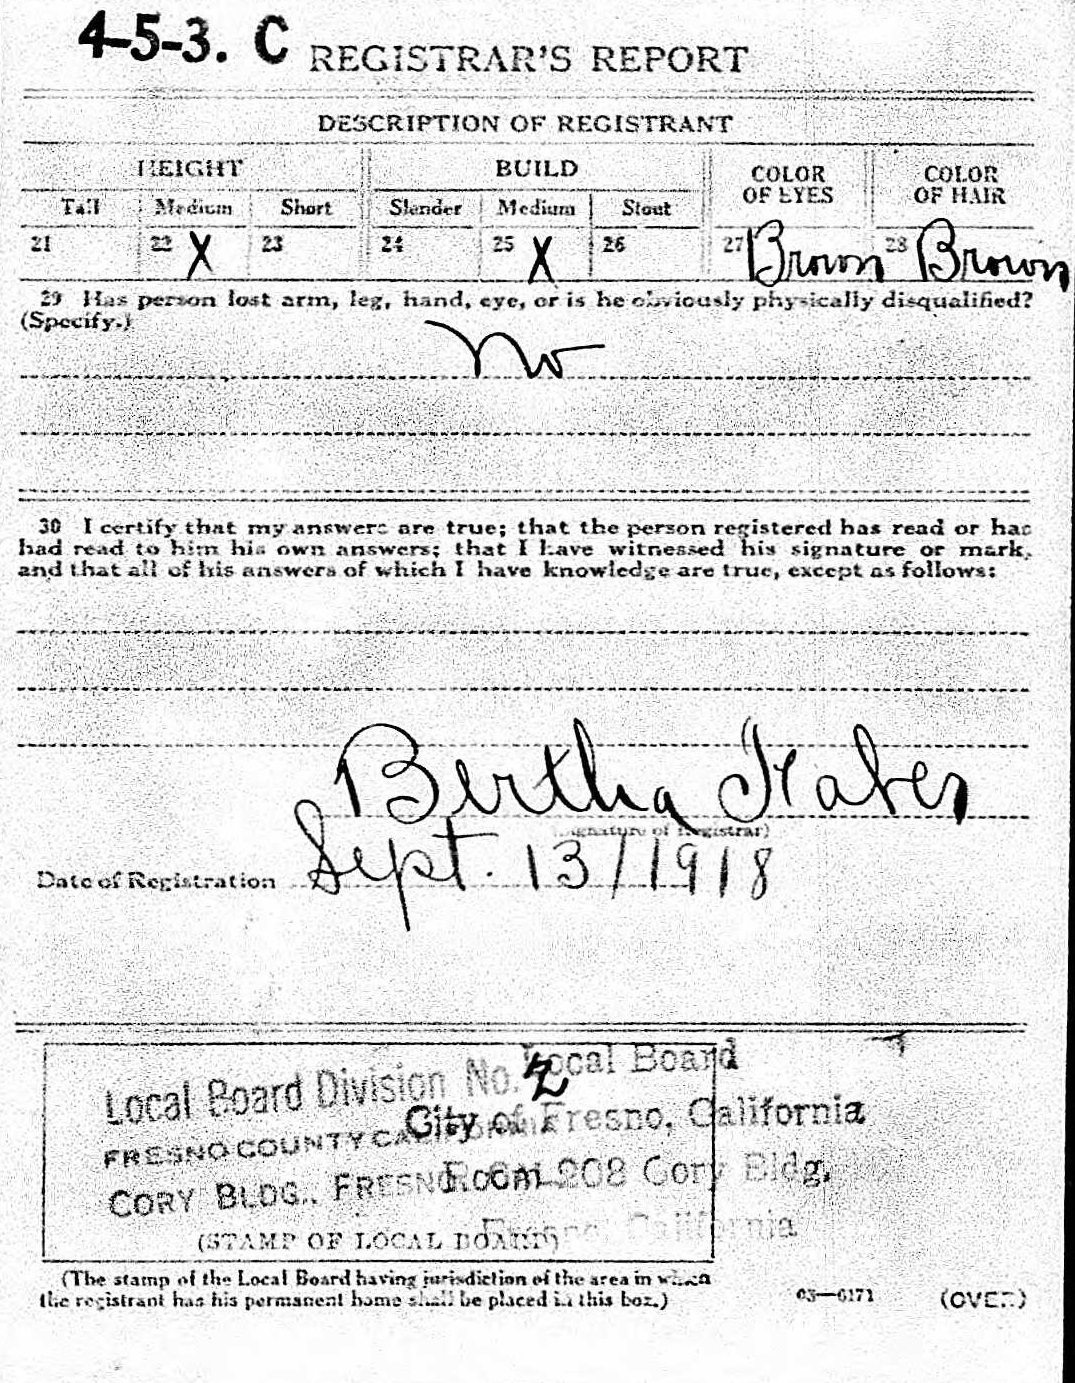 4-5-3. C REGISTRAR'S REPORT
DESCRIPTION OF REGISTRANT
HEIGHT BUILD COLOR OF EYES COLOR OF HAIR
Tall Medium Short Slender Medium Stout
21 22 X 23 24 25 X 26 27 Brown 28 Brown
29 Has person lost arm, leg, hand, eye, or is he obviously physically disqualified?
(Specify.)
No
30 I certify that my answers are true; that the person registered has read or has
had read to him his own answers; that I have witnessed his signature or mark,
and that all of his answers of which I have knowledge are true, except as follows:
Bertha Faber
(Signature of Registrar)
Date of Registration Sept. 13/1918
Local Board Division No. 2
FRESNO COUNTY
CORY BLDG., FRESNO, CAL.
Local Board
City of Fresno, California
Room 208 Cory Bldg,
Fresno, California
(STAMP OF LOCAL BOARD)
(The stamp of the Local Board having jurisdiction of the area in which
the registrant has his permanent home shall be placed in this box.)
03—6171 (OVER)